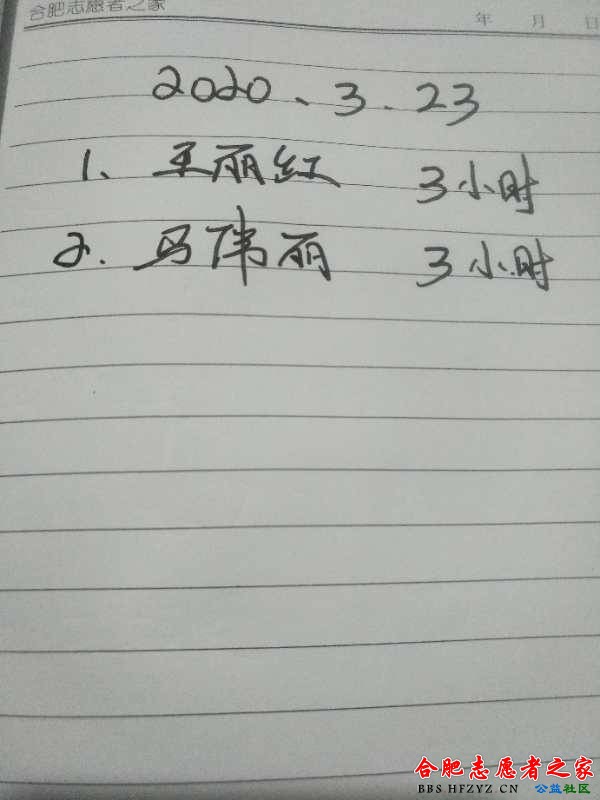 合肥志愿者之家
年 月 日
2020、3.23
1、王丽红 3小时
2.马伟丽 3小时
合肥志愿者之家
BBS HFZYZ CN 公益社区